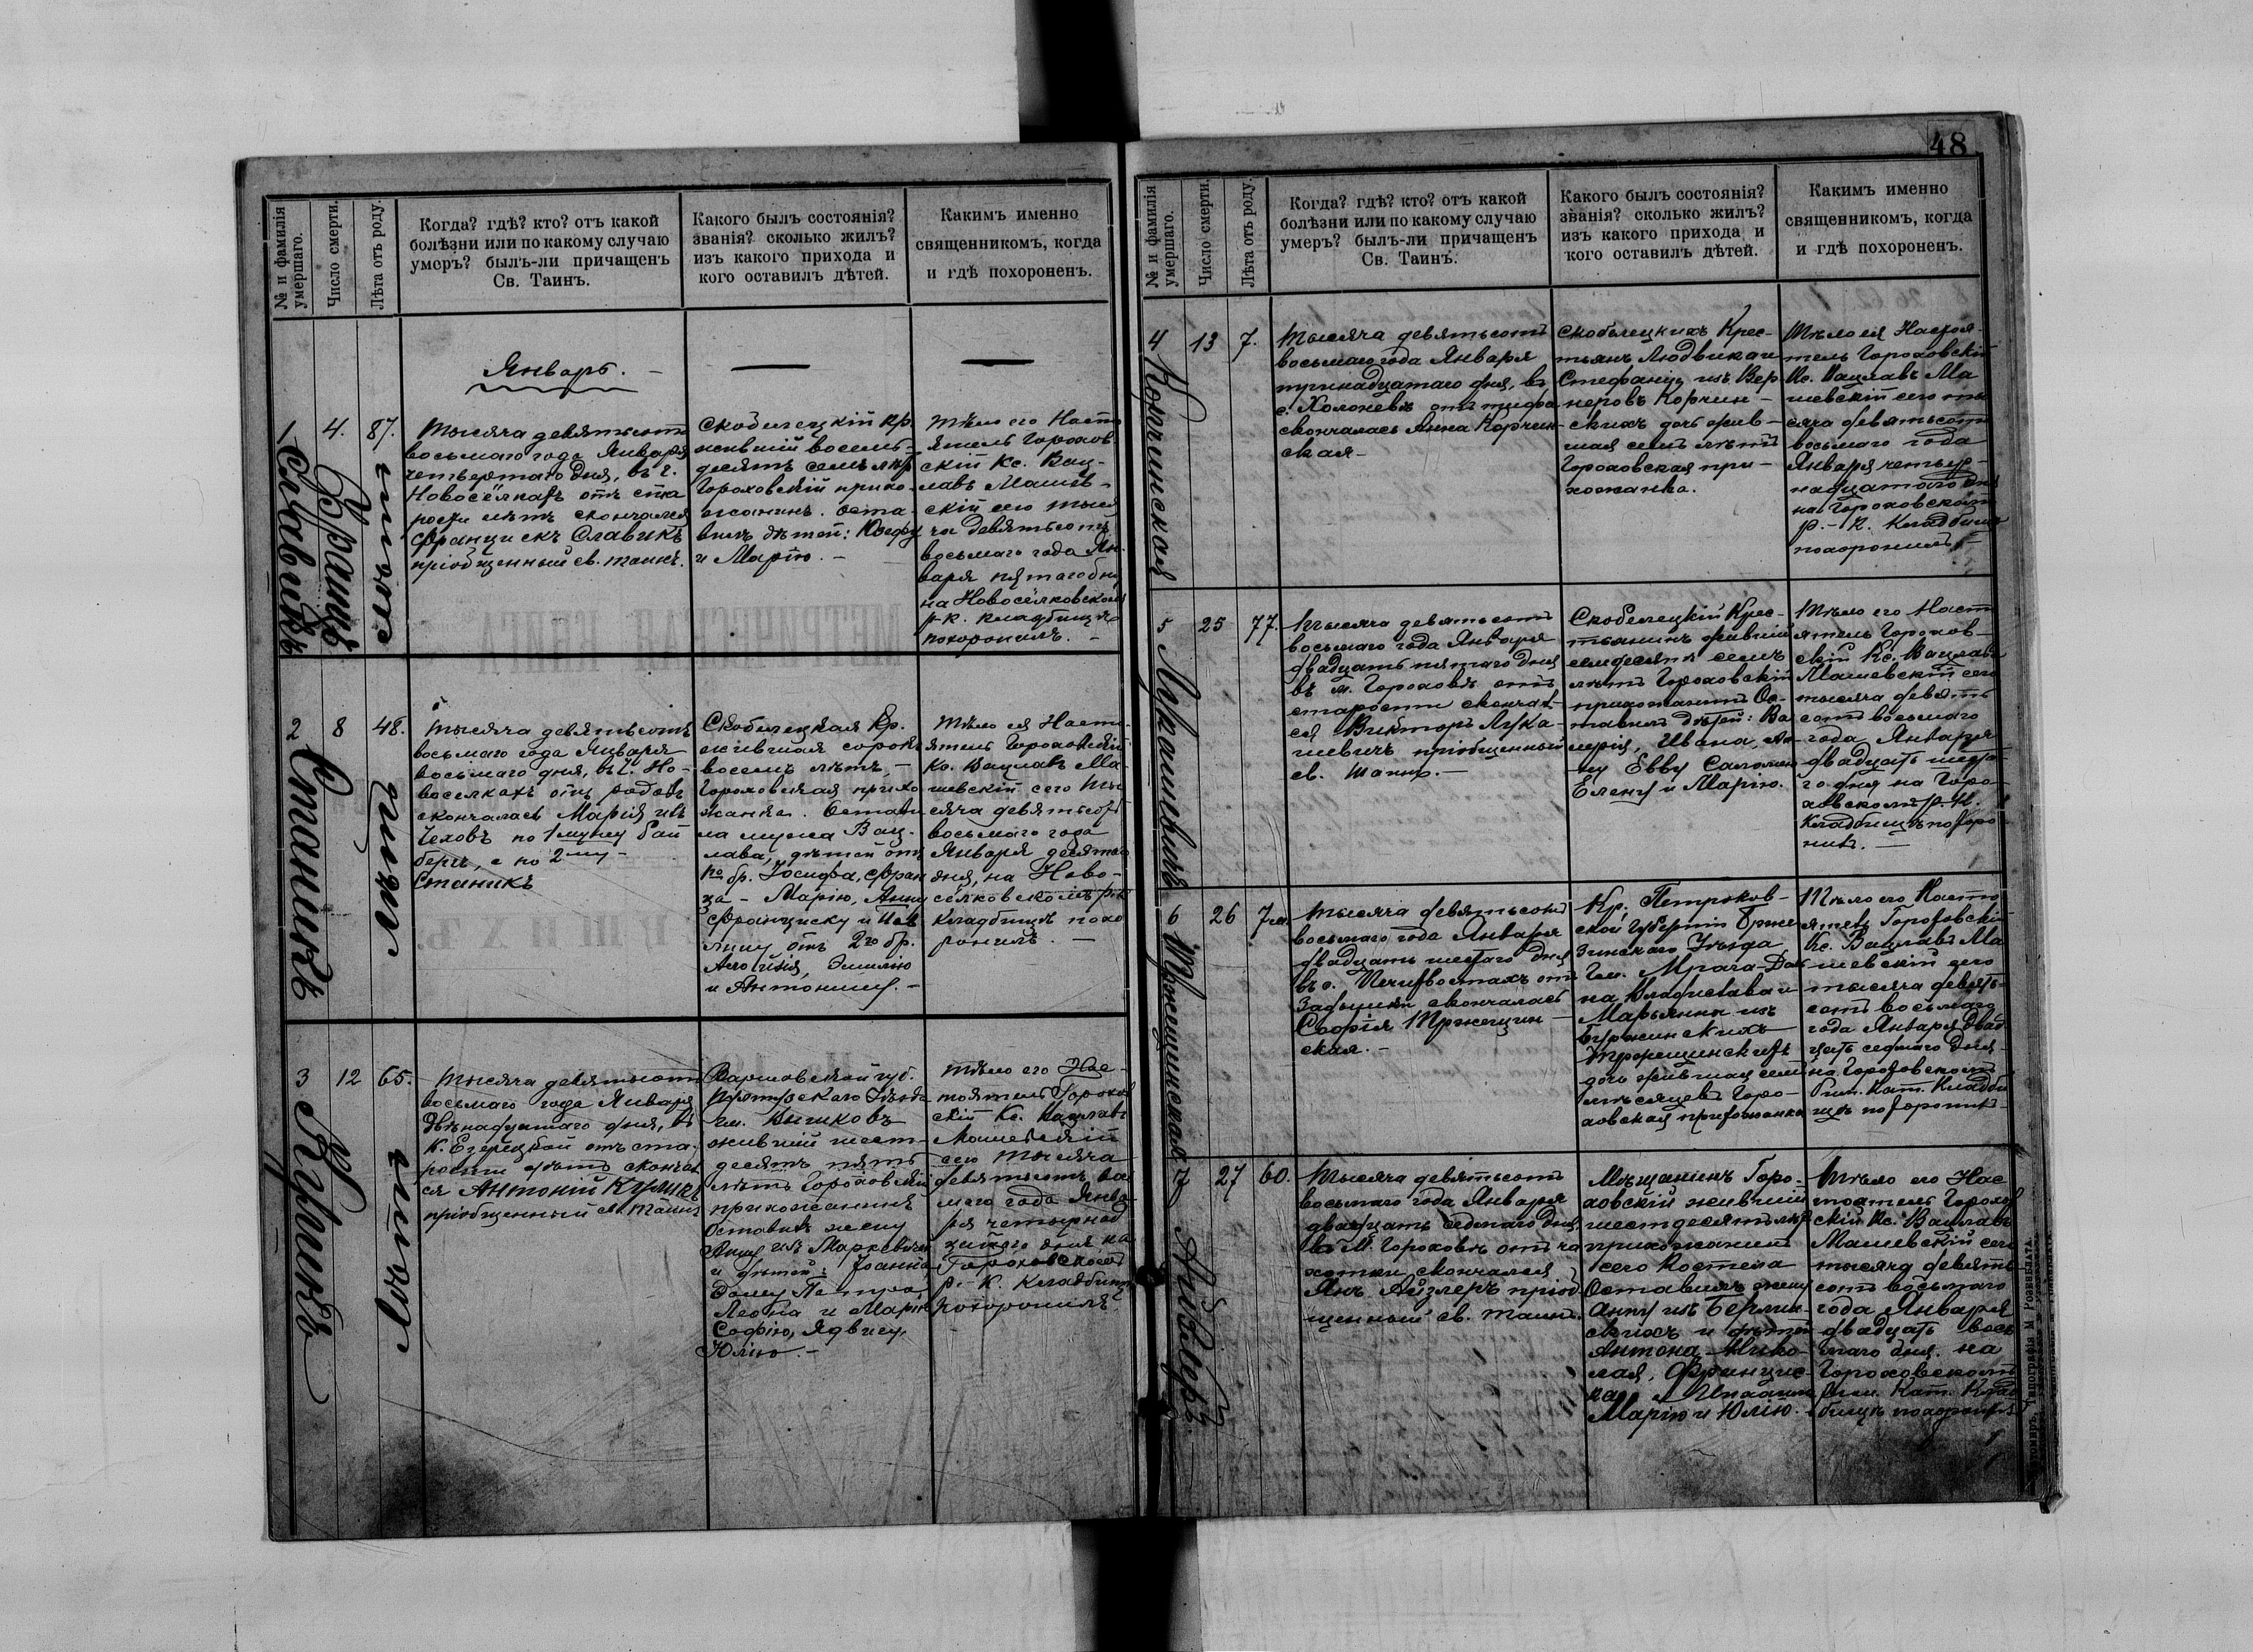 № и фамилія умершаго.
Число смерти.
Лѣта отъ роду.
Когда? гдѣ? кто? отъ какой
болѣзни или по какому случаю
умеръ? былъ-ли причащенъ
Св. Таинъ.
Какого былъ состоянія?
званія? сколько жилъ?
изъ какого прихода и
кого оставилъ дѣтей.
Какимъ именно
священникомъ, когда
и гдѣ похороненъ.
Январь.
1
Славикъ
4.
87.
Тысяча девятьсотъ
восьмаго года Января
четвертаго дня, въ
Новосёлкахъ отъ ста
рости лѣтъ скончался
Францискъ Славикъ
пріобщенный св. таинъ.
Скобелецкій кр.
жившій восемь-
десятъ семь лѣт
Гороховскій прихо-
жанинъ. Оста-
вилъ дѣтей: Юзефу
и Марію.
Тѣло его Насто
ятель Горохов
скій Кс. Вац-
лавъ Машев-
скій сего тыся
ча девятьсотъ
восьмаго года Ян-
варя пятаго дня
на Новосёлковском
р-к. кладбищѣ
похоронилъ. -
2
Станикъ
8
48.
Тысяча девятьсотъ
восьмаго года Января
восьмаго дня, въ с. Но-
воселкахъ отъ родовъ
скончалась Марія изъ
Чеховъ по 1 мужу
а по 2му -
Станикъ
Скобелецкая Кр.
жившая сорокъ
восемь лѣтъ, -
Гороховская прихо
жанка. Остави
ла мужа Вац-
лава, дѣтей отъ
1го бр. Іосифа, Фран
ца - Марію, Анну
Франциску и
отъ 2го бр.
Алойзія, Эмилію
и Антонину. -
Тѣло ея Насто-
ятель Гороховскій
Кс. Вацлавъ Ма-
шевскій сего ты
сяча девятьсотъ
восьмаго года
Января десятаго
дня, на Ново-
селковскомъ р-к
кладбищѣ похо
ронилъ. -
3
Куликъ
12
65.
Тысяча девятьсотъ
восьмаго года Января
двѣнадцатаго дня, въ
к. Езерецкой отъ ста-
рости лѣтъ скончал
ся Антоній Куликъ
пріобщенный св. таинъ
Варшавской губ.
Уѣзда
гм.
жившій шесть-
десятъ пять
лѣтъ Гороховскій
прихожанинъ
Оставилъ жену
Анну изъ
и дѣтей: Іоанна,
Петра,
Леона и Марію
Софію, Ядвигу,
Юлію. -
Тѣло его Нас-
тоятель Горохов
скій Кс. Вацлавъ
Машевскій
сего тысяча
девятьсотъ вос
маго года Янва-
ря четырнад
цатаго дня на
Гороховскомъ
р.-к. кладбищѣ
похоронилъ.
48
№ и фамилія умершаго.
Число смерти.
Лѣта отъ роду.
Когда? гдѣ? кто? отъ какой
болѣзни или по какому случаю
умеръ? былъ-ли причащенъ
Св. Таинъ.
Какого былъ состоянія?
званія? сколько жилъ?
изъ какого прихода и
кого оставилъ дѣтей.
Какимъ именно
священникомъ, когда
и гдѣ похороненъ.
4
Корчинская
13
7.
Тысяча девятьсотъ
восьмаго года Января
тринадцатаго дня, въ
с. Холоневѣ отъ тифа
скончалась Анна Корчин-
ская -
Скобелецкихъ Крес-
тьянъ Людвика и
Стефаніи изъ Вер-
неровъ Корчин-
скихъ дочь жив-
шая семь лѣтъ
Гороховская при-
хожанка.
Тѣло ея Настоя-
тель Гороховскій
Кс. Вацлавъ Ма
шевскій сего ты
сяча девятьсотъ
восьмаго года
Января четыр-
надцатаго дня
на Гороховскомъ
р.-к. кладбищѣ
похоронилъ. -
5
Лукашевичъ
25
77.
Тысяча девятьсотъ
восьмаго года Января
двадцать пятаго дня
въ м. Гороховѣ отъ
старости скончал-
ся Викторъ Лука-
шевичъ пріобщенный
св. таинъ. -
Скобелецкій Крес-
тьянинъ жившій
семдесятъ семь
лѣтъ Гороховскій
прихожанинъ Ос-
тавилъ дѣтей: Ва
лерія, Ивана, Ан-
ну Евву Саломею
Елену и Марію.
Тѣло его Насто
ятель Горохов-
скій Кс. Вацлавъ
Машевскій сего
тысяча девять
сотъ восьмаго
года Января
двадцать шеста
го дня на Горо-
ховскомъ р. к.
кладбищѣ похоро
нилъ. -
6
Тржещинская
26
7 м.
Тысяча девятьсотъ
восьмаго года Января
двадцать шестаго дня
въ с. Печихвостахъ отъ
задышки скончалась
Софія Тржещин-
ская. -
Кр. Петроков-
ской губерніи Брже
зинскаго Уѣзда
Гм. Мрога-Доль
на Владислава и
Марьянны изъ
Тржещинскихъ
дочь жившая семь
мѣсяцевъ Горо-
ховская прихожанка
Тѣло его Насто
ятель Гороховскій
Кс. Вацлавъ Ма
шевскій сего
тысяча девять-
сотъ восьмаго
года Января двад
цать седмаго дня
на Гороховскомъ
Рим. Кат. Кладби
щѣ похоронилъ -
7
Айзлеръ
27
60.
Тысяча девятьсотъ
восьмаго года Января
двадцать седмаго дня
въ м. Гороховѣ отъ ча
хотки скончался
Янъ Айзлеръ пріоб
щенный св. таинъ.
Мѣщанинъ Горо-
ховскій жившій
шестдесятъ лѣт
прихожанинъ
сего Костела
Оставилъ жену
Анну изъ Берлин-
скихъ и дѣтей
Антона Нико-
лая, Францис-
ка и
Марію и Юлію.
Тѣло его Нас
тоятель Горохов
скій Кс. Вацлавъ
Машевскій сего
тысяча девять-
сотъ восьмаго
года Января
двадцать вось
маго дня на
Гороховскомъ
Рим. Кат. Клад
бищѣ похоронилъ
Житомиръ, Типографія М. Розенблата.